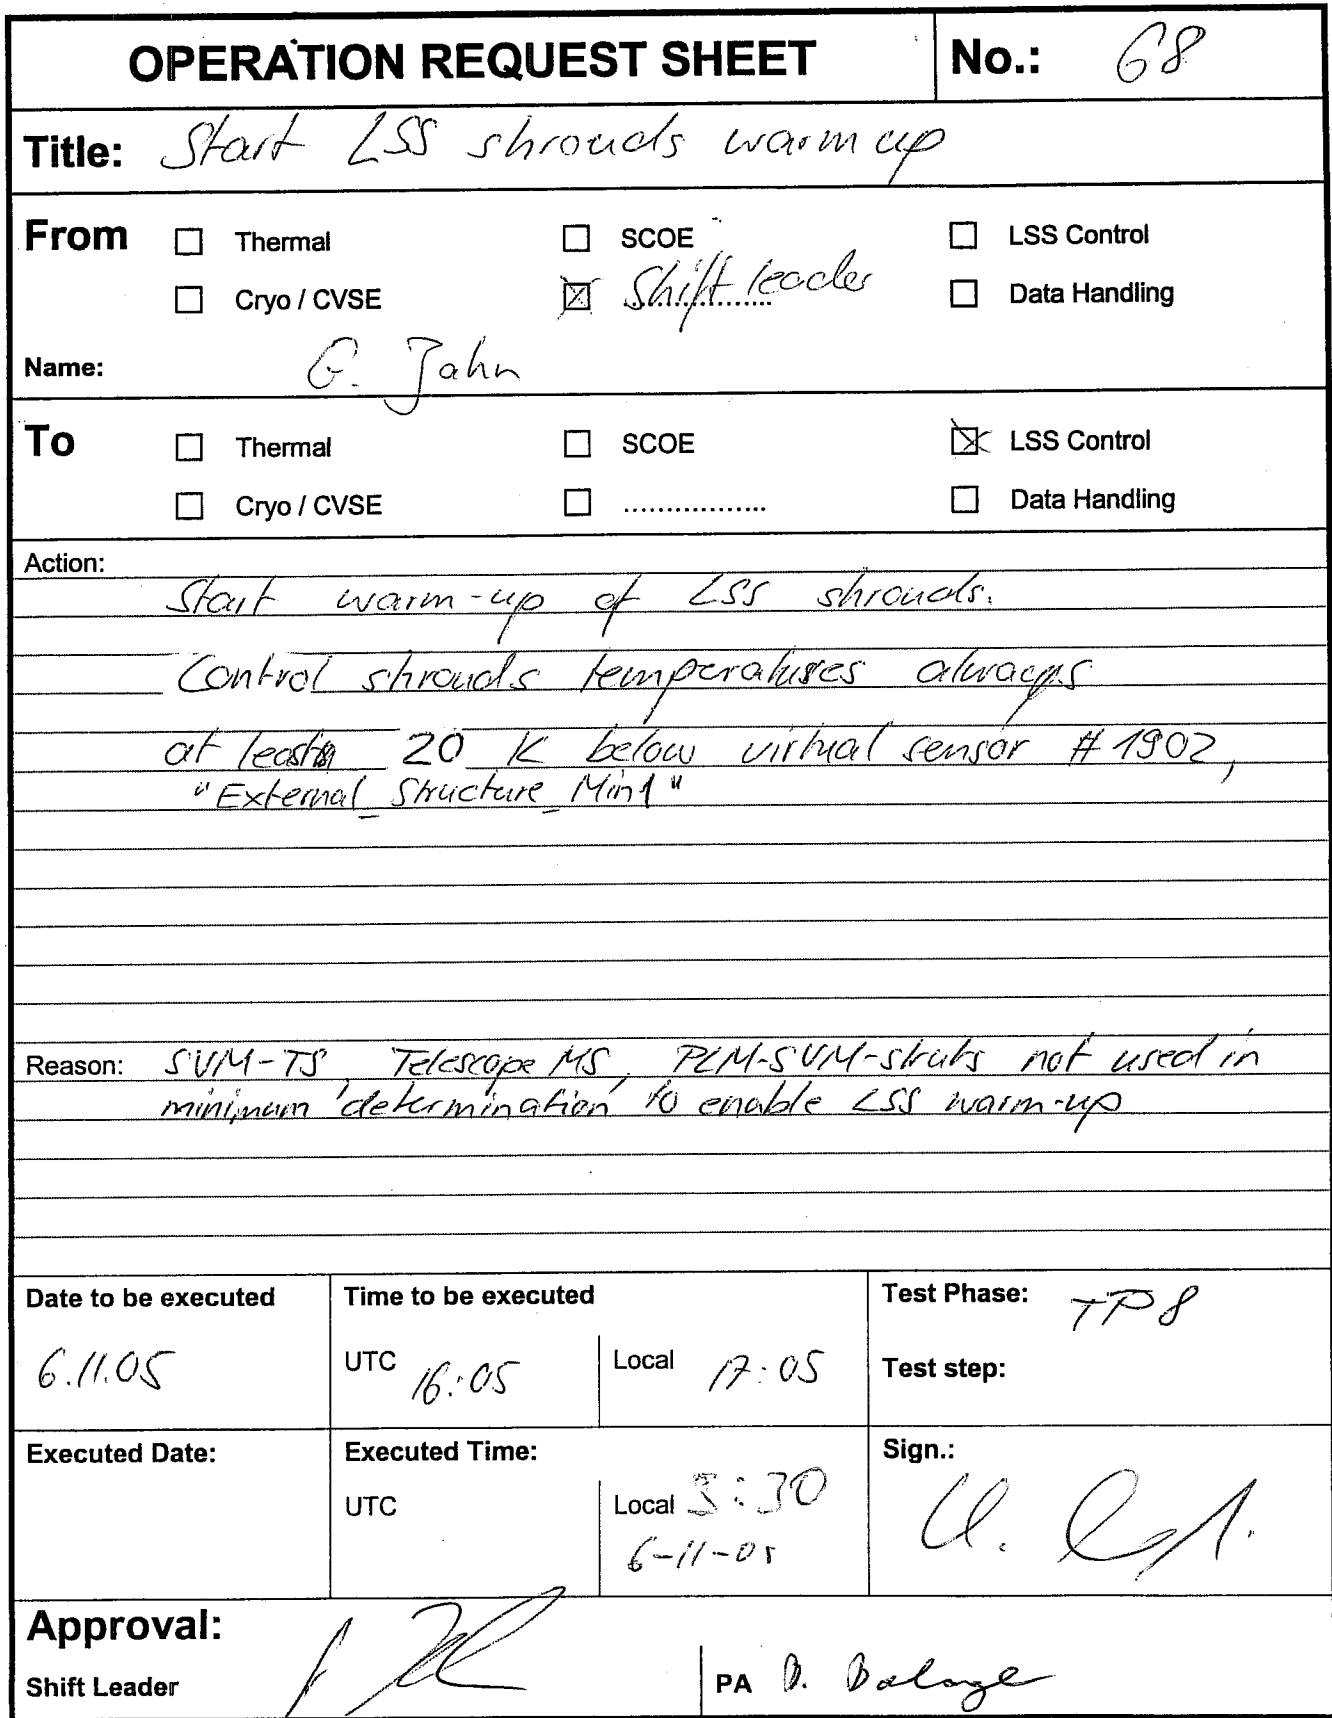 OPERATION REQUEST SHEET No.: 68
Title: Start LSS shrouds warm up
From ☐ Thermal ☐ SCOE ☐ LSS Control
☐ Cryo / CVSE ☒ Shift leader ☐ Data Handling
Name: G. Jahn
To ☐ Thermal ☐ SCOE ☒ LSS Control
☐ Cryo / CVSE ☐ ................. ☐ Data Handling
Action:
Start warm-up of LSS shrouds.
Control shrouds temperatures always
at least 20 K below virtual sensor # 1902,
"External_Structure_Min1"
Reason: SVM-TS, Telescope MS, PLM-SVM-struts not used in
minimum determination to enable LSS warm-up
Date to be executed Time to be executed Test Phase: TP8
6.11.05 UTC 16:05 Local 17:05 Test step:
Executed Date: Executed Time: Sign.:
UTC Local :30
6-11-05
Approval:
Shift Leader PA